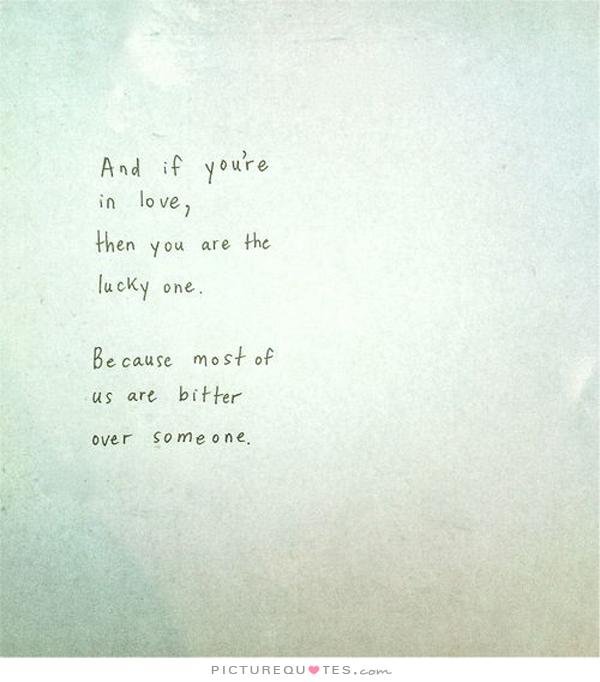 And if you're
in love,
then you are the
lucky one.
Because most of
us are bitter
over someone.
PICTUREQUOTES.com